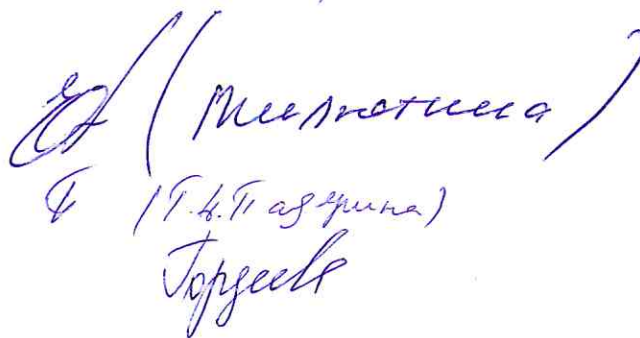 (Милютина)
(Т.Н.Падерина)
Гордеев